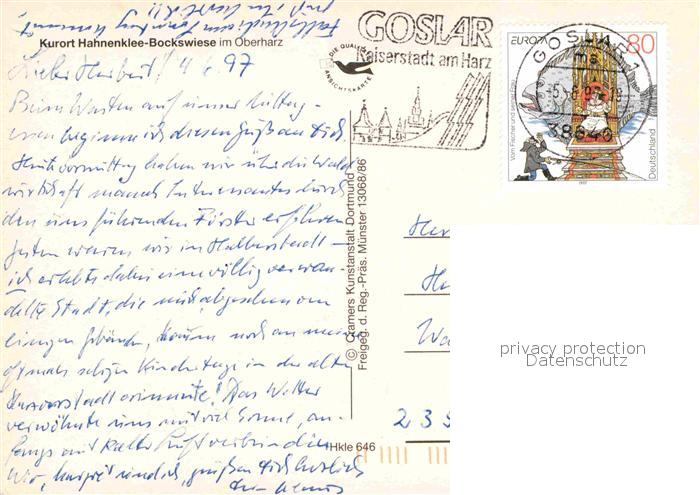 Kurort Hahnenklee-Bockswiese im Oberharz
Lieber Herbert! 4.6.97
Beim Warten auf unser Mittag-
essen beginne ich diesen Gruß an Dich.
Heute vormittag haben wir über die Wald-
wirtschaft manch Interessantes durch
den uns führenden Förster erfahren
Gestern waren wir in Halberstadt –
ich erlebte dabei eine völlig verwan-
delte Stadt, die mich, abgesehen von
einigen Gebäuden, kaum noch an meine
oftmals schöne Kindertage in der alten
erinnerte! Das Wetter
verwöhnte uns mit viel Sonne, an-
fangs mit kalter Luft verbunden
grüßen Dich herzlich
DIE QUALITÄTS
ANSICHTSKARTE
GOSLAR
Kaiserstadt am Harz
GOSLAR 1
38640
EUROPA
80
Vom Fischer und seiner Frau
Deutschland
1997
© Cramers Kunstanstalt Dortmund
Freigeg. d. Reg.-Präs. Münster 13068/86
Hkle 646
235
privacy protection
Datenschutz